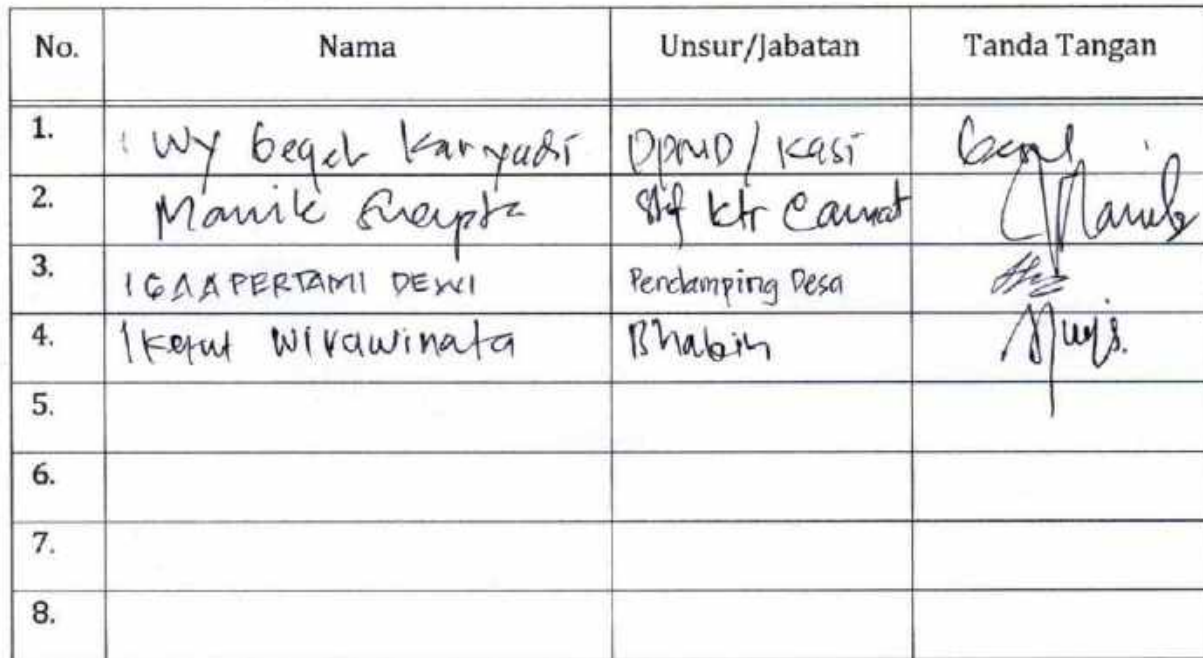 No. Nama Unsur/Jabatan Tanda Tangan
1. I Wy Gegel Karyadi DPMD / Kasi
2. Manik Stf ktr Camat Manik
3. I G A A PERTAMI DEWI Pendamping Desa
4. I Ketut Wirawinata Bhabin
5.
6.
7.
8.